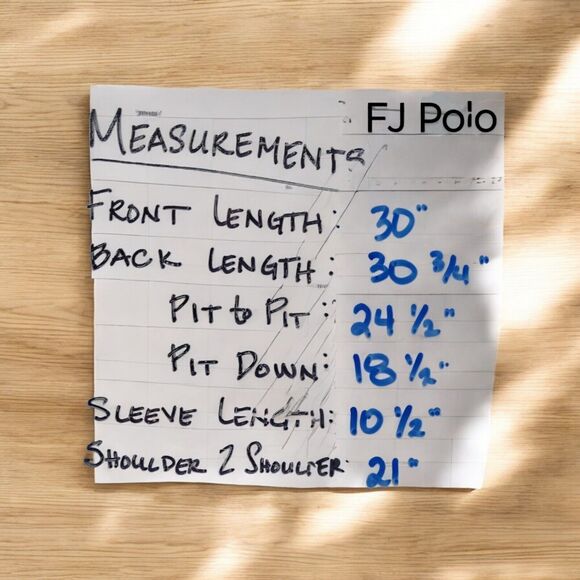 FJ Polo
MEASUREMENTS
FRONT LENGTH: 30"
BACK LENGTH: 30 3/4"
PIT to PIT: 24 1/2"
PIT DOWN: 18 1/2"
SLEEVE LENGTH: 10 1/2"
SHOULDER 2 SHOULTER: 21"